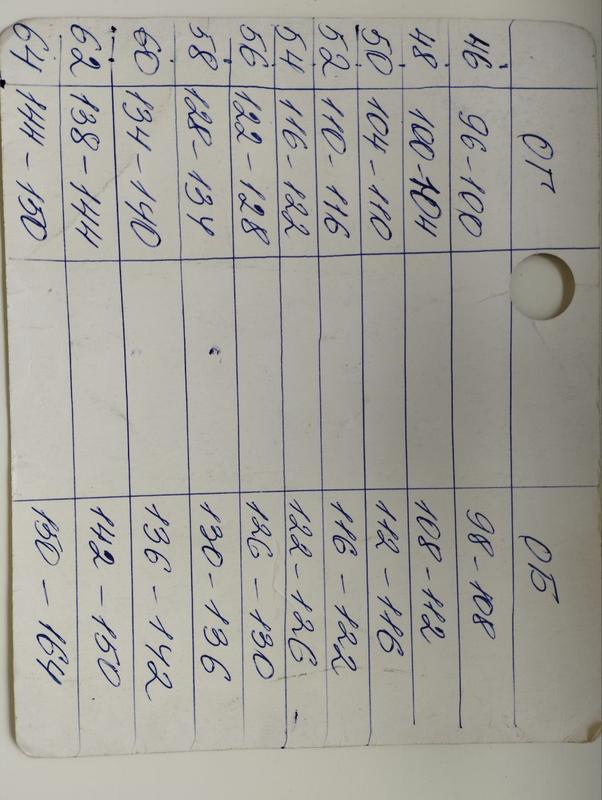 ОГ ОБ
46 96-100 98-108
48 100-104 108-112
50 104-110 112-116
52 110-116 116-122
54 116-122 122-126
56 122-128 126-130
58 128-134 130-136
60 134-140 136-142
62 138-144 142-150
64 144-150 150-164